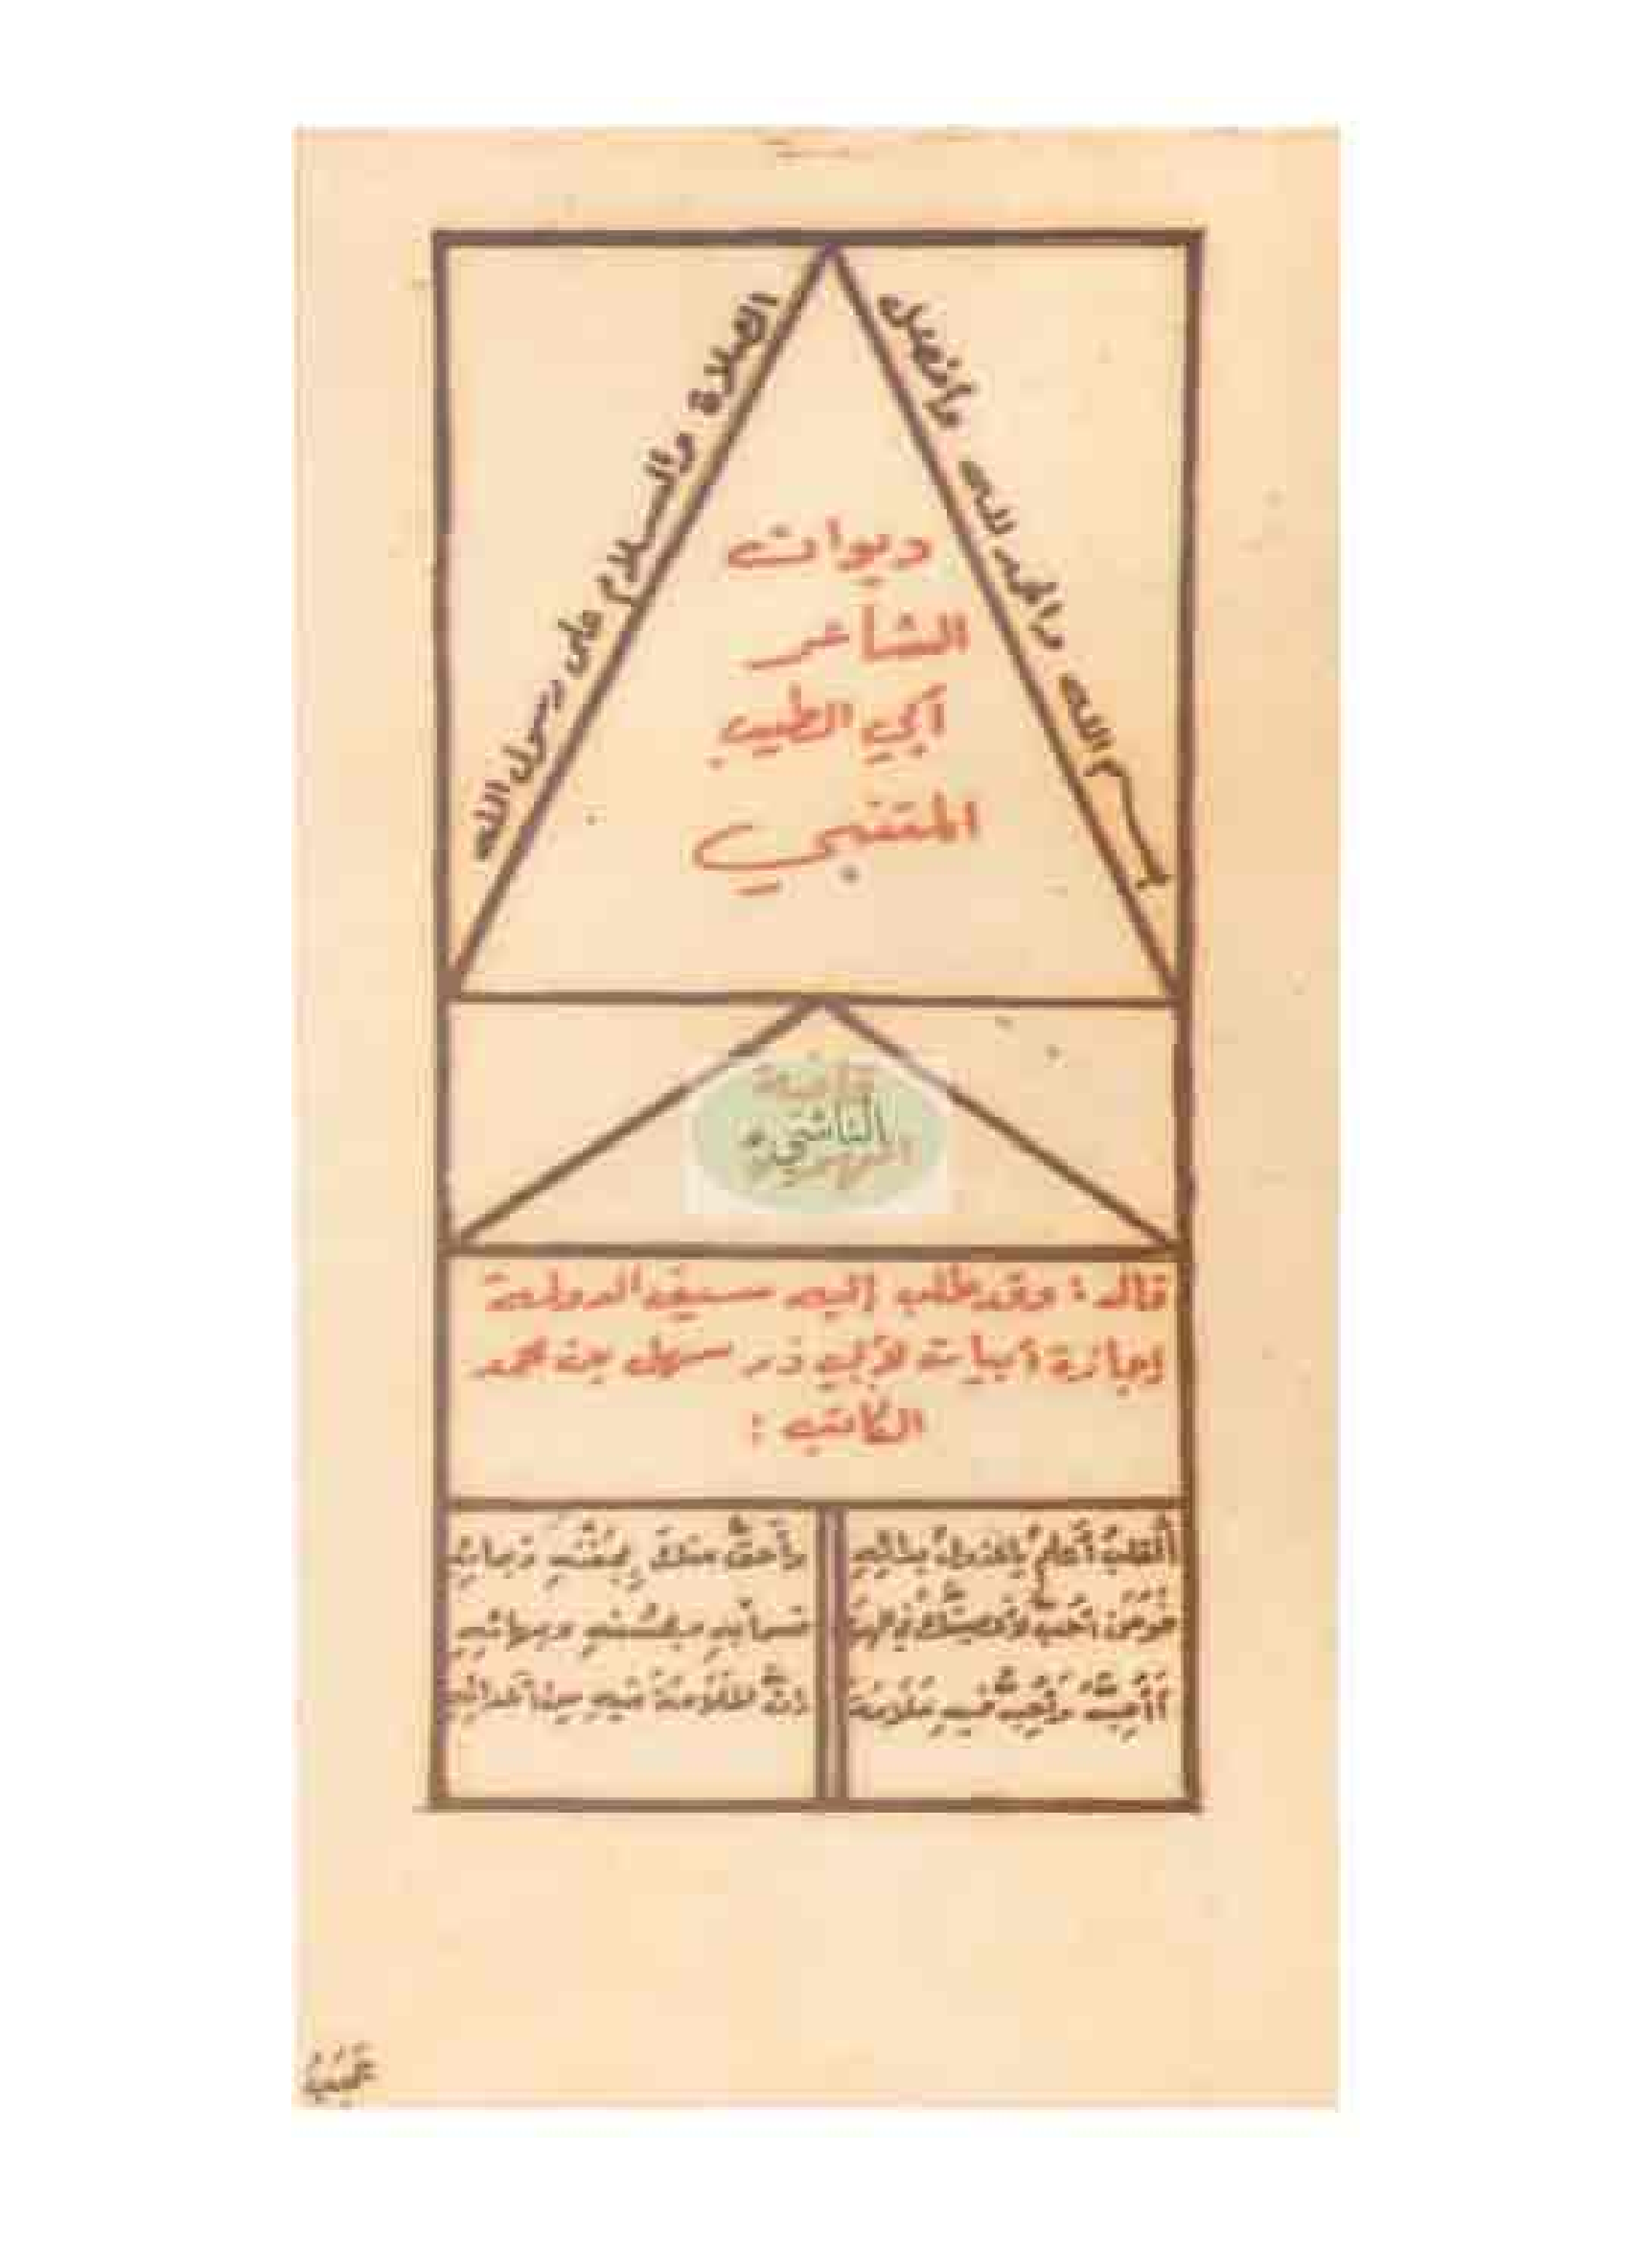 بسم الله والحمد لله وأفضل
الصلاة والسلام على رسول الله
ديوان
الشاعر
أبي الطيب
المتنبي
قافية
الهمزة
الناشري
قال: وقد طلب إليه سيف الدولة
إجازة أبيات لأبي ذر سهل بن محمد
الكاتب:
ألقلبُ أعلمُ ياعذولُ بدائِهِ وأحقُّ منكَ بِجفنِهِ وبمائِهِ
فَوَمَن أُحبُّ لأعصينَّكَ في الهوى قسماً بهِ وبحُسنهِ وبهائِهِ
أَأُحِبُّهُ وَأُحِبُّ فيهِ مَلَامَةً إنَّ المَلَامَةَ فيهِ مِن أعدائِهِ
عَجِبَ